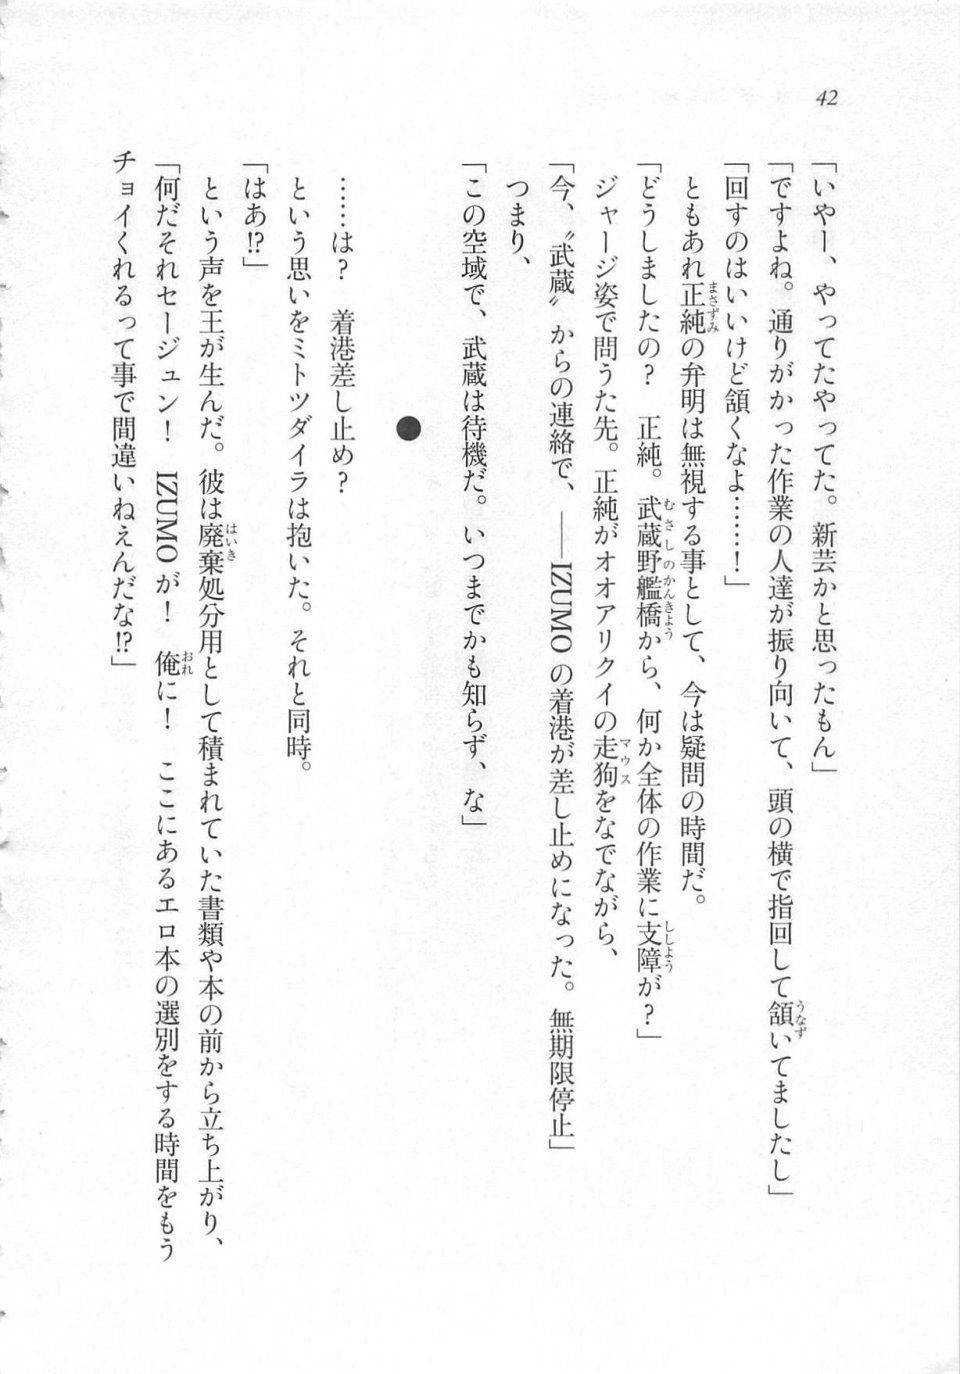 42
「いやー、やってたやってた。新芸かと思ったもん」
「ですよね。通りがかった作業の人達が振り向いて、頭の横で指回して頷いてましたし」
「回すのはいいけど頷くなよ……！」
ともあれ正純の弁明は無視する事として、今は疑問の時間だ。
「どうしましたの？　正純。武蔵野艦橋から、何か全体の作業に支障が？」
ジャージ姿で問うた先。正純がオオアリクイの走狗をなでながら、
「今、〝武蔵〟からの連絡で、――IZUMOの着港が差し止めになった。無期限停止」
つまり、
「この空域で、武蔵は待機だ。いつまでかも知らず、な」
●
……は？　着港差し止め？
という思いをミトツダイラは抱いた。それと同時。
「はあ!?」
という声を王が生んだ。彼は廃棄処分用として積まれていた書類や本の前から立ち上がり、
「何だそれセージュン！　IZUMOが！　俺に！　ここにあるエロ本の選別をする時間をもう
チョイくれるって事で間違いねえんだな!?」